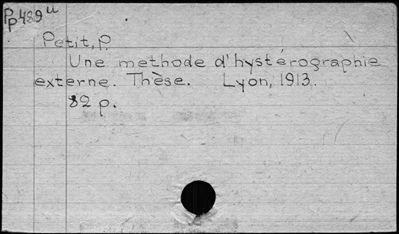 Pp489u
Petit, P.
Une methode d'hystérographie
externe. Thèse. Lyon, 1913.
82 p.